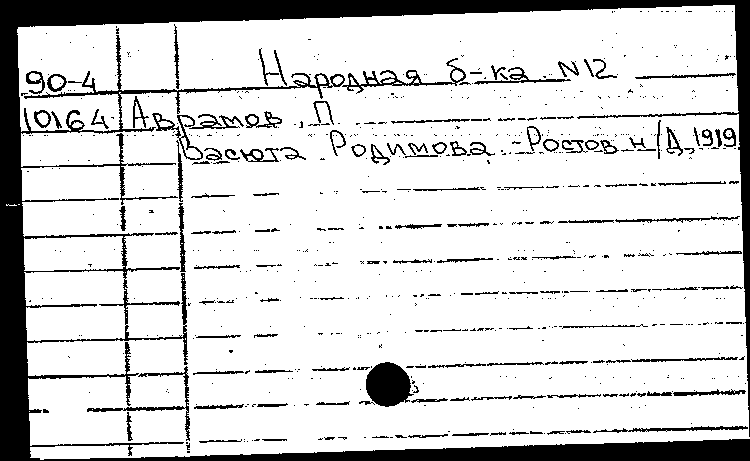 90-4 Народная б-ка N12
10164 Аврамов, П
Васюта Родимова. - Ростов н/Д, 1919